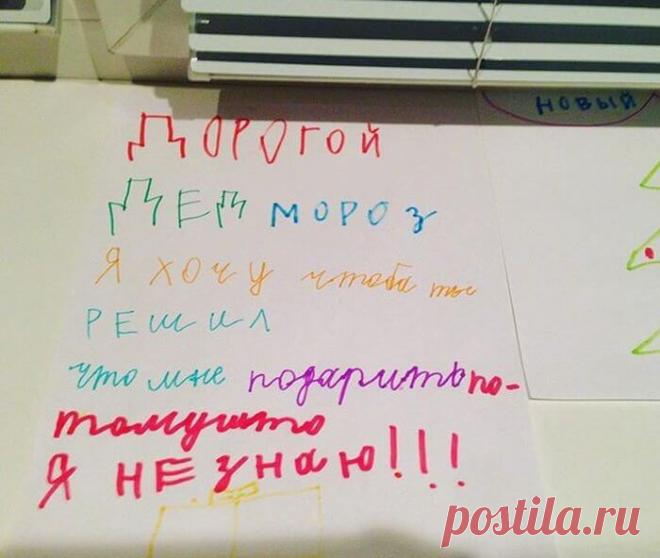 ДОРОГОЙ
ДЕД МОРОЗ
Я ХОЧУ чтоба ты
РЕШИЛ
что мне подарить по-
томушто
Я НЕ ЗНАЮ!!!
НОВЫЙ
postila.ru